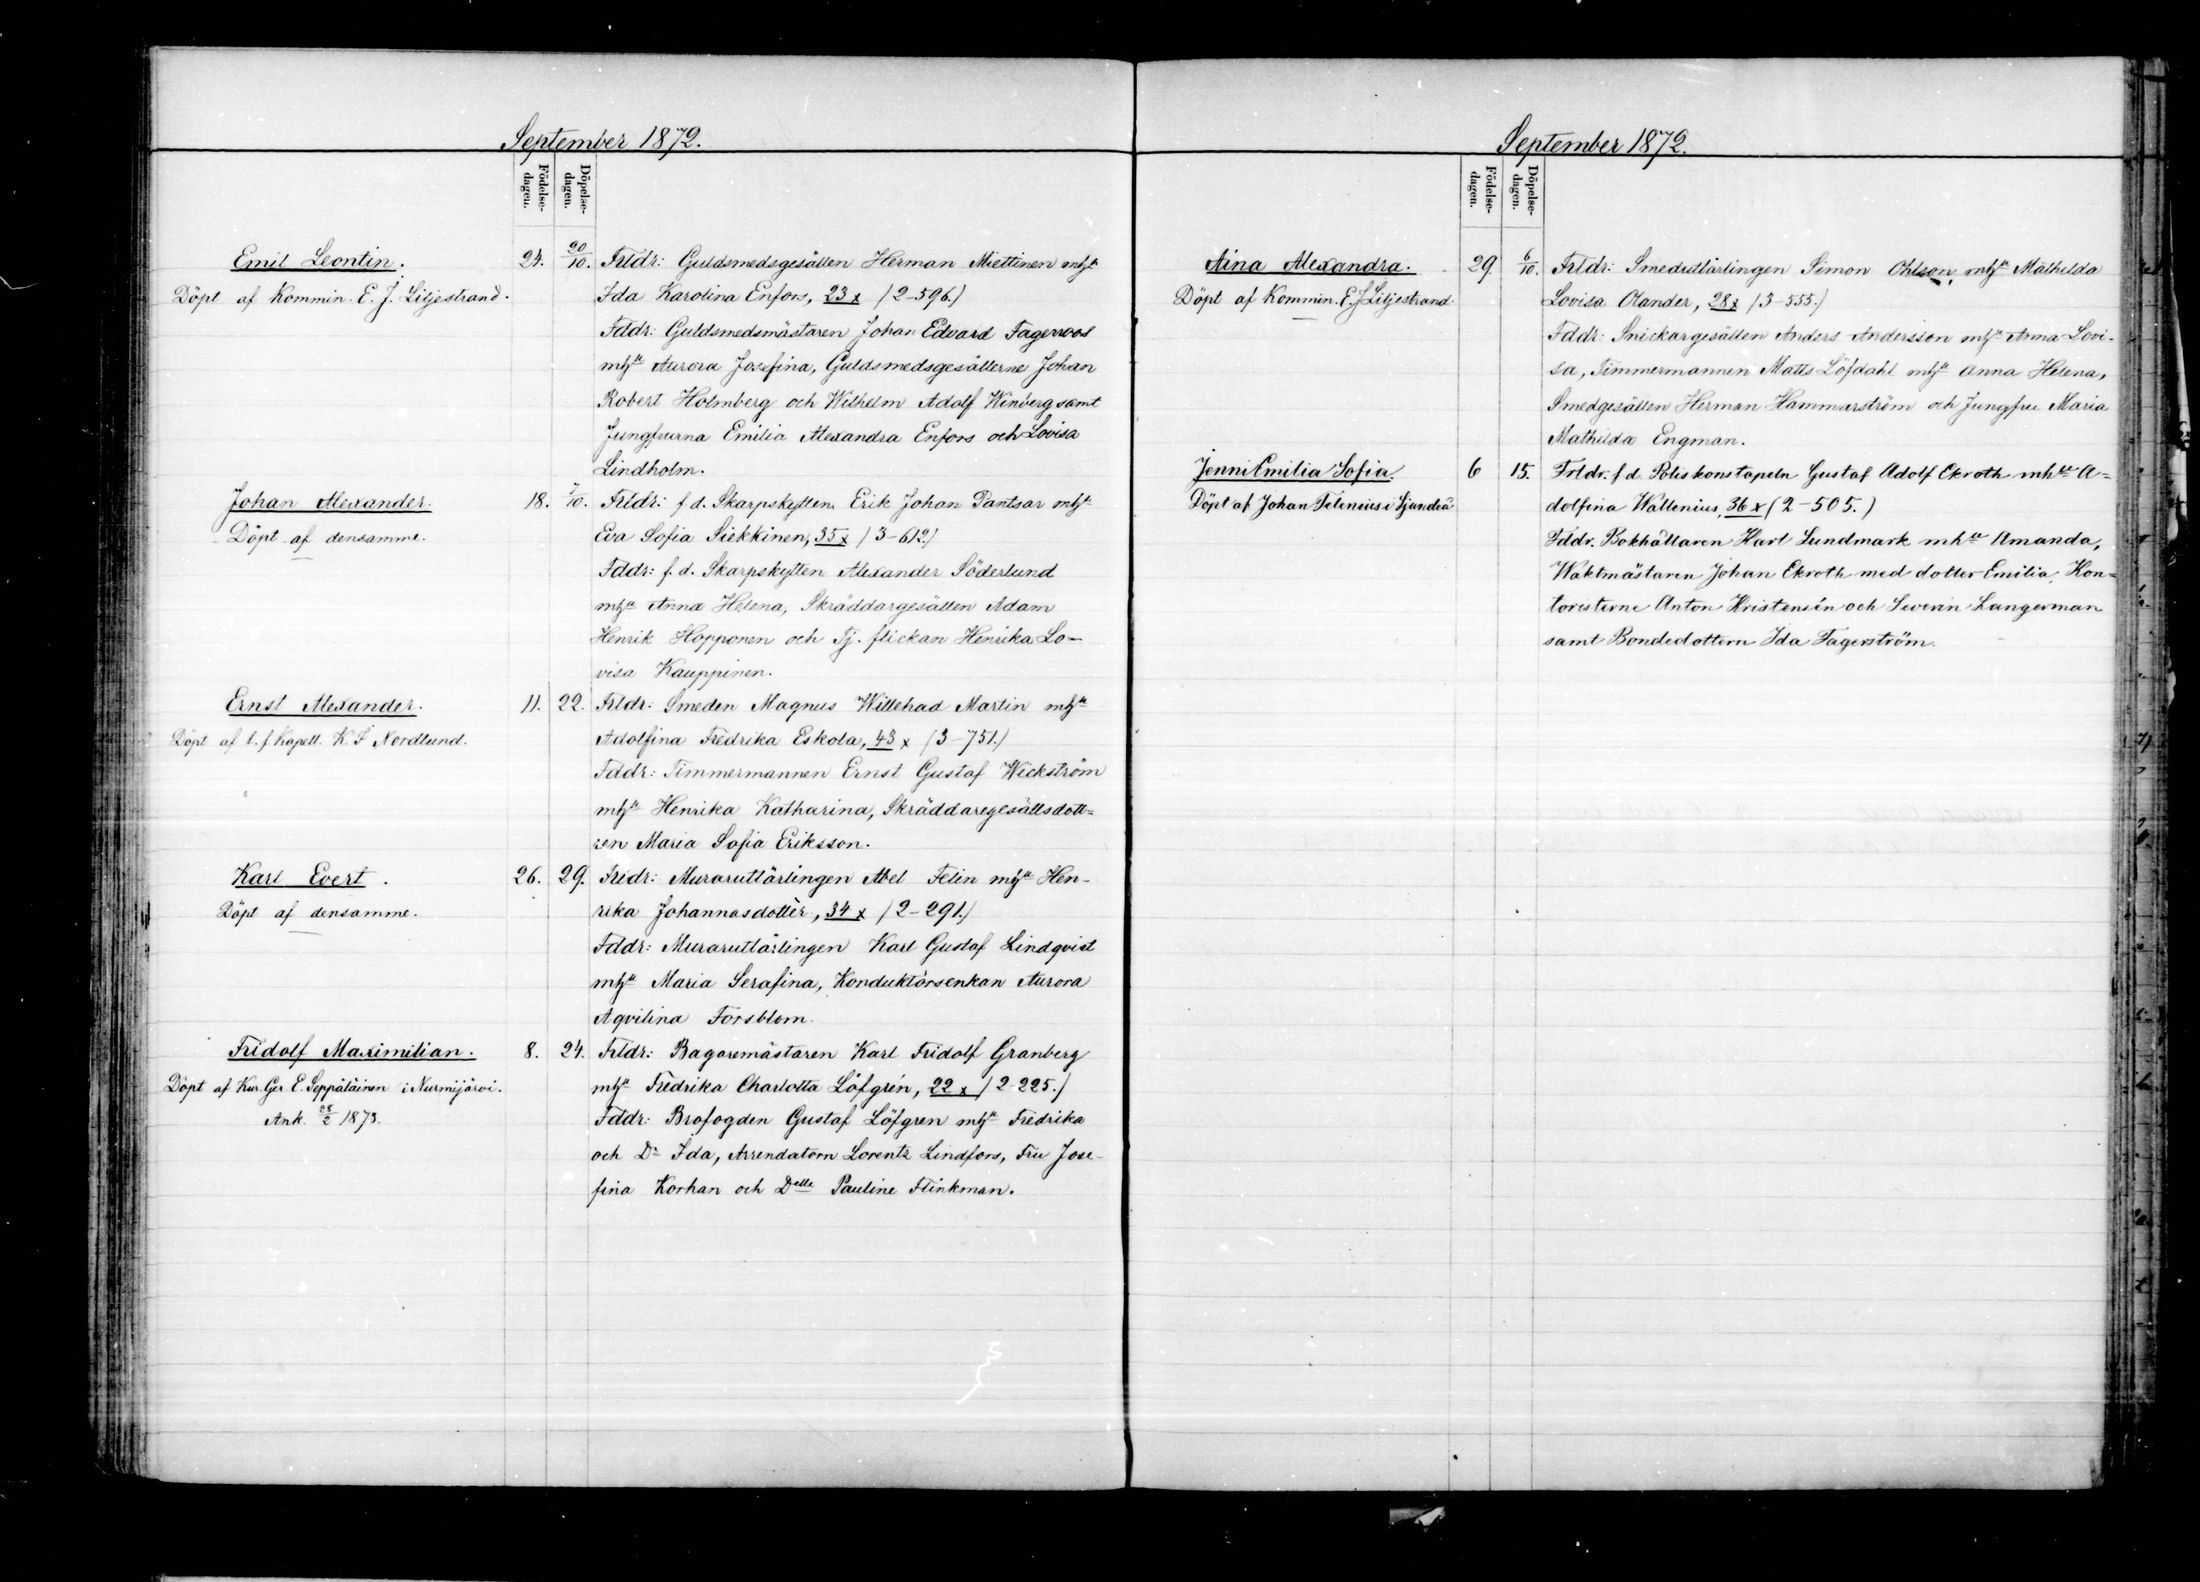 September 1872.
Födelse-dagen.
Döpelse-dagen.
Emil Leontin.
Döpt af Kommin. E. J. Liljestrand.
24. 20/10. Frldr: Guldsmedsgesällen Herman Miettinen mhu
Ida Karolina Enfors, 23 x (2-596.)
Fddr: Guldsmedsmästaren Johan Edvard Fagerroos
mhu Aurora Josefina, Guldsmedsgesällerne Johan
Robert Holmberg och Wilhelm Adolf Winberg samt
Jungfrurna Emilia Alexandra Enfors och Lovisa
Lindholm.
Johan Alexander.
Döpt af densamme.
18. /10. Frldr: f d. Skarpskytten Erik Johan Pantsar mhu
Eva Sofia Siekkinen, 35 x (3-612.)
Fddr: f. d. Skarpskytten Alexander Söderlund
mhu Anna Helena, Skräddargesällen Adam
Henrik Hopponen och Tj. flickan Henrika Lo-
visa Kauppinen.
Ernst Alexander.
Döpt af t. f Kapell. K. F Nordlund.
11. 22. Frldr: Smeden Magnus Willehad Martin mhu
Adolfina Fredrika Eskola, 43 x (3-751.)
Fddr: Timmermannen Ernst Gustaf Wickström
mhu Henrika Katharina, Skräddaregesällsdott-
ren Maria Sofia Eriksson.
Karl Evert.
Döpt af densamme.
26. 29. Frldr: Murarutlärlingen Abel Felin mhu Hen-
rika Johannasdotter, 34 x (2-291.)
Fddr: Murarutlärlingen Karl Gustaf Lindqvist
mhu Maria Serafina, Konduktörsenkan Aurora
Aqvilina Forsblom.
Fridolf Maximilian.
Döpt af Kur. Ger E. Seppäläinen i Nurmijärvi.
Ank. 28/2 1873.
8. 24. Frldr: Bagaremästaren Karl Fridolf Granberg
mhu Fredrika Charlotta Löfgrén, 22 x (2-225.)
Fddr: Brofogden Gustaf Löfgren mhu Fredrika
och Dr Ida, Arrendatorn Lorentz Lindfors, Fru Jose-
fina Korhan och Delle Pauline Flinkman.
September 1872.
Födelse-dagen.
Döpelse-dagen.
Aina Alexandra.
Döpt af Kommin. E. J Liljestrand.
29 6/10. Frldr: Smedutlärlingen Simon Ohlson, mhu Mathilda
Lovisa Olander, 28 x (3-555.)
Fddr: Snickargesällen Anders Andersson mhu Anna Lovi-
sa, Timmermannen Matts Löfdahl mhu Anna Helena,
Smedgesällen Herman Hammarström och Jungfru Maria
Mathilda Engman.
Jenni Emilia Sofia.
Döpt af Johan Telenius i Sjundeå
6 15. Frldr. f d. Poliskonstapeln Gustaf Adolf Ekroth mhu A-
dolfina Wallenius, 36 x (2-505.)
Fddr. Bokhållaren Karl Lundmark mhu Amanda,
Waktmästaren Johan Ekroth med dotter Emilia, Kon-
toristerne Anton Kristensén och Severin Langerman
samt Bondedottern Ida Fagerström.